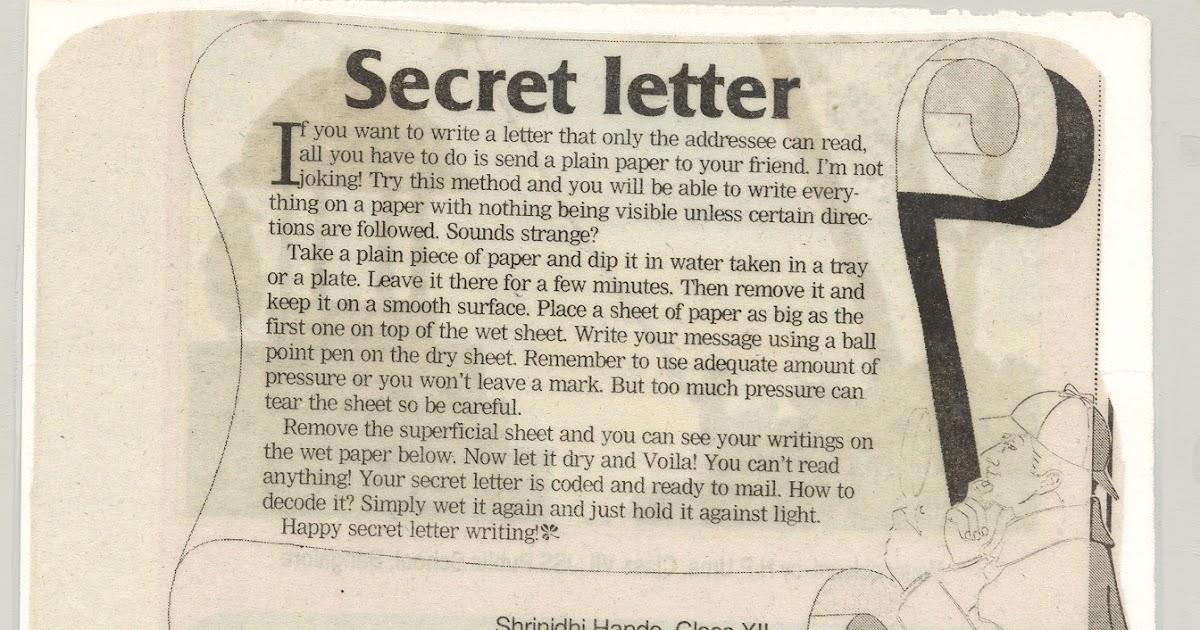 Secret letter
If you want to write a letter that only the addressee can read,
all you have to do is send a plain paper to your friend. I'm not
joking! Try this method and you will be able to write every-
thing on a paper with nothing being visible unless certain direc-
tions are followed. Sounds strange?
Take a plain piece of paper and dip it in water taken in a tray
or a plate. Leave it there for a few minutes. Then remove it and
keep it on a smooth surface. Place a sheet of paper as big as the
first one on top of the wet sheet. Write your message using a ball
point pen on the dry sheet. Remember to use adequate amount of
pressure or you won't leave a mark. But too much pressure can
tear the sheet so be careful.
Remove the superficial sheet and you can see your writings on
the wet paper below. Now let it dry and Voila! You can't read
anything! Your secret letter is coded and ready to mail. How to
decode it? Simply wet it again and just hold it against light.
Happy secret letter writing!
Shrinidhi Hande, Class XII